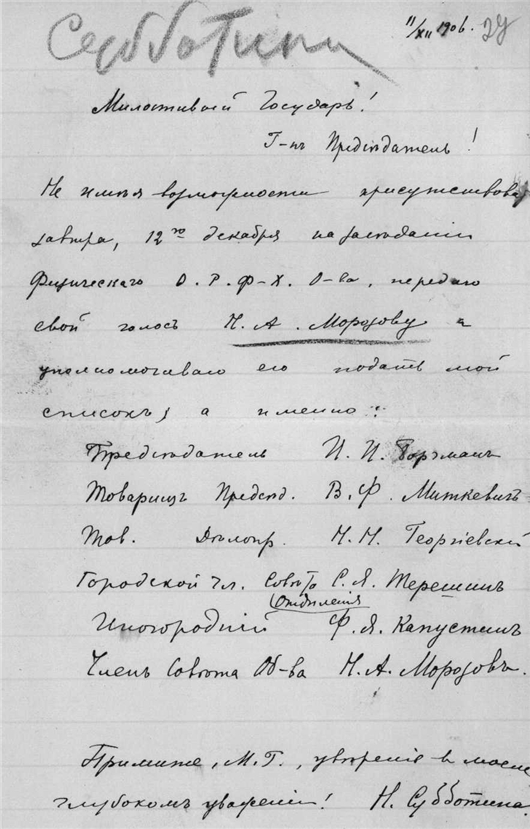 Субботина
11/XII 1906.
Милостивый Государь!
Г-нъ Предсѣдатель!
Не имѣя возможности присутствовать
завтра, 12го декабря на засѣданіи
Физическаго О. Р. Ф-Х. О-ва, передаю
свой голосъ Н. А. Морозову и
уполномочиваю его подать мой
списокъ, а именно:
Предсѣдатель И. И. Боргманъ
Товарищъ Предсѣд. В. Ф. Миткевичъ
Тов. Дѣлопр. Н. Н. Георгіевскій
Городской чл. Совѣта С. Я. Терешинъ
Отдѣленія
Иногородній Ф. Я. Капустинъ
Членъ Совѣта Об-ва Н. А. Морозовъ.
Примите, М. Г., увѣреніе в моемъ
глубокомъ уваженіи! Н. Субботина